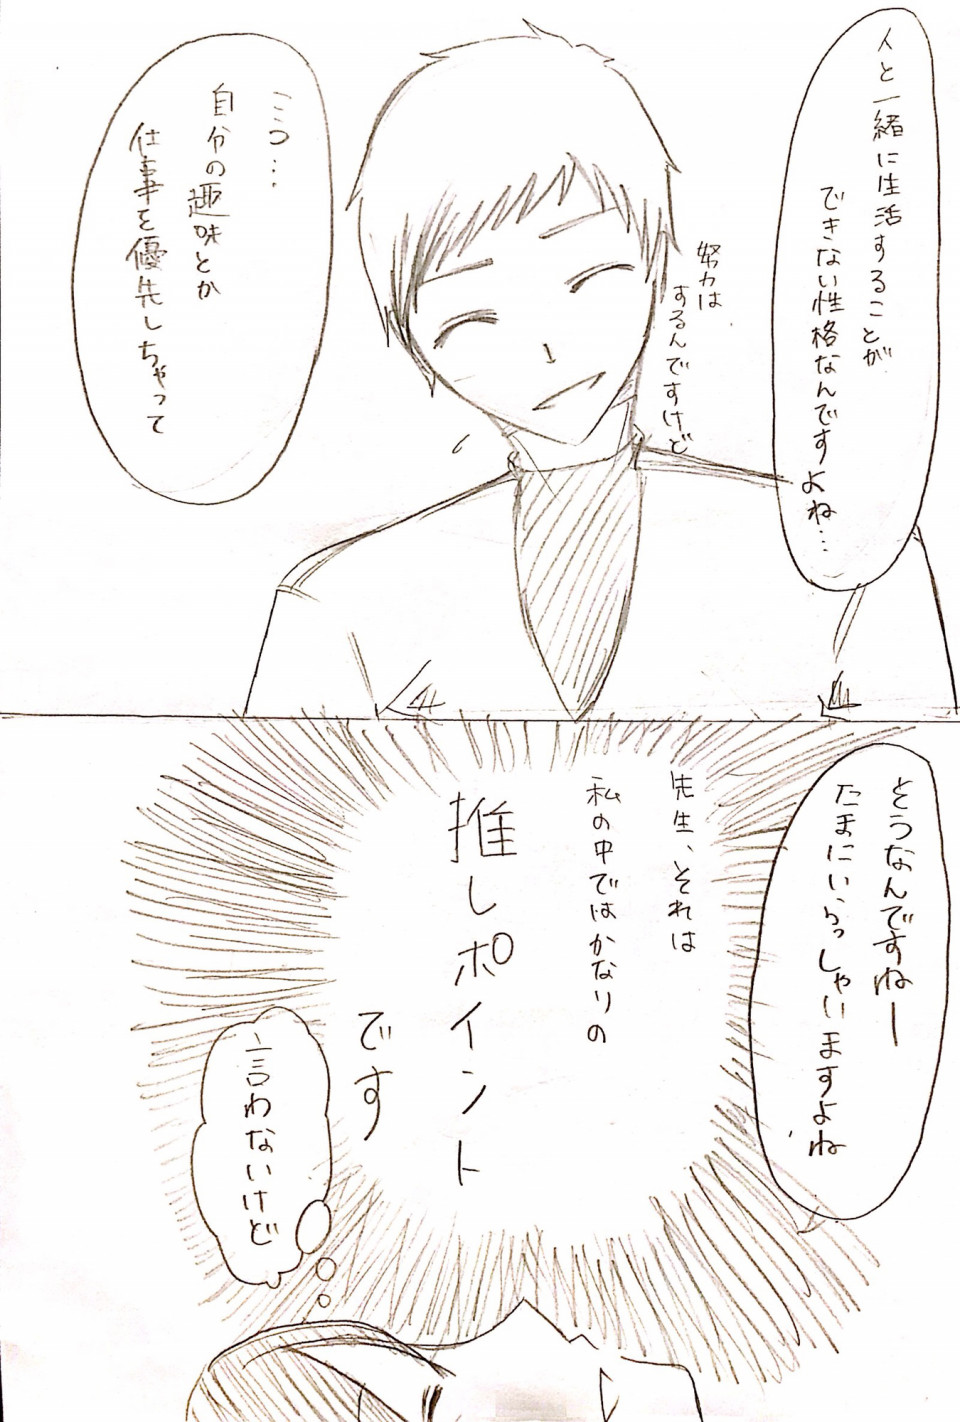 人と一緒に生活することが
できない性格なんですよね…
努力は
するんですけど
こう…
自分の趣味とか
仕事を優先しちゃって
そうなんですねー
たまにいらっしゃいますよね
先生、それは
私の中ではかなりの
推しポイント
です
言わないけど